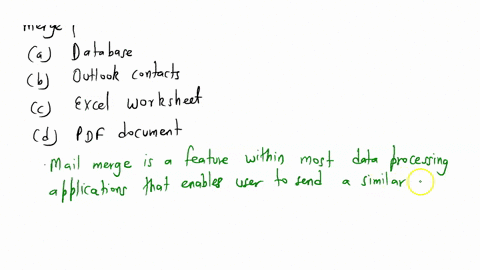 merge
(a) Database
(b) Outlook contacts
(c) Excel worksheet
(d) PDF document
. Mail merge is a feature within most data processing
applications that enables user to send a similar